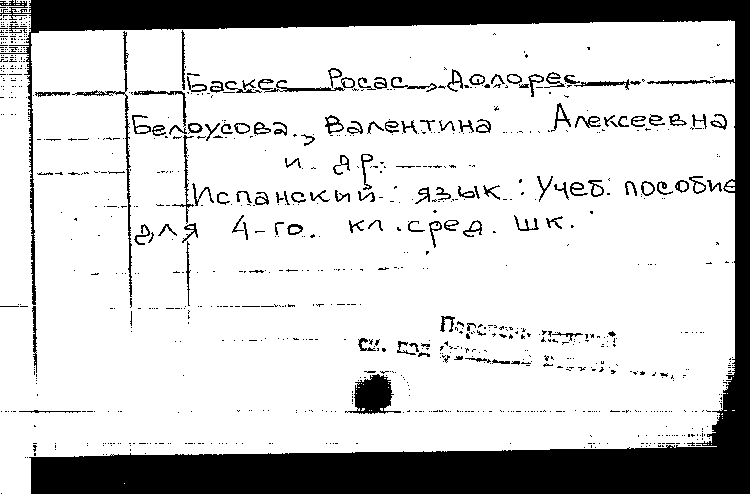 Баскес Росас, Долорес
Белоусова, Валентина Алексеевна
и др.
Испанский язык: Учеб. пособие
для 4-го. кл. сред. шк.
Перечень изданий
см. под фамилией